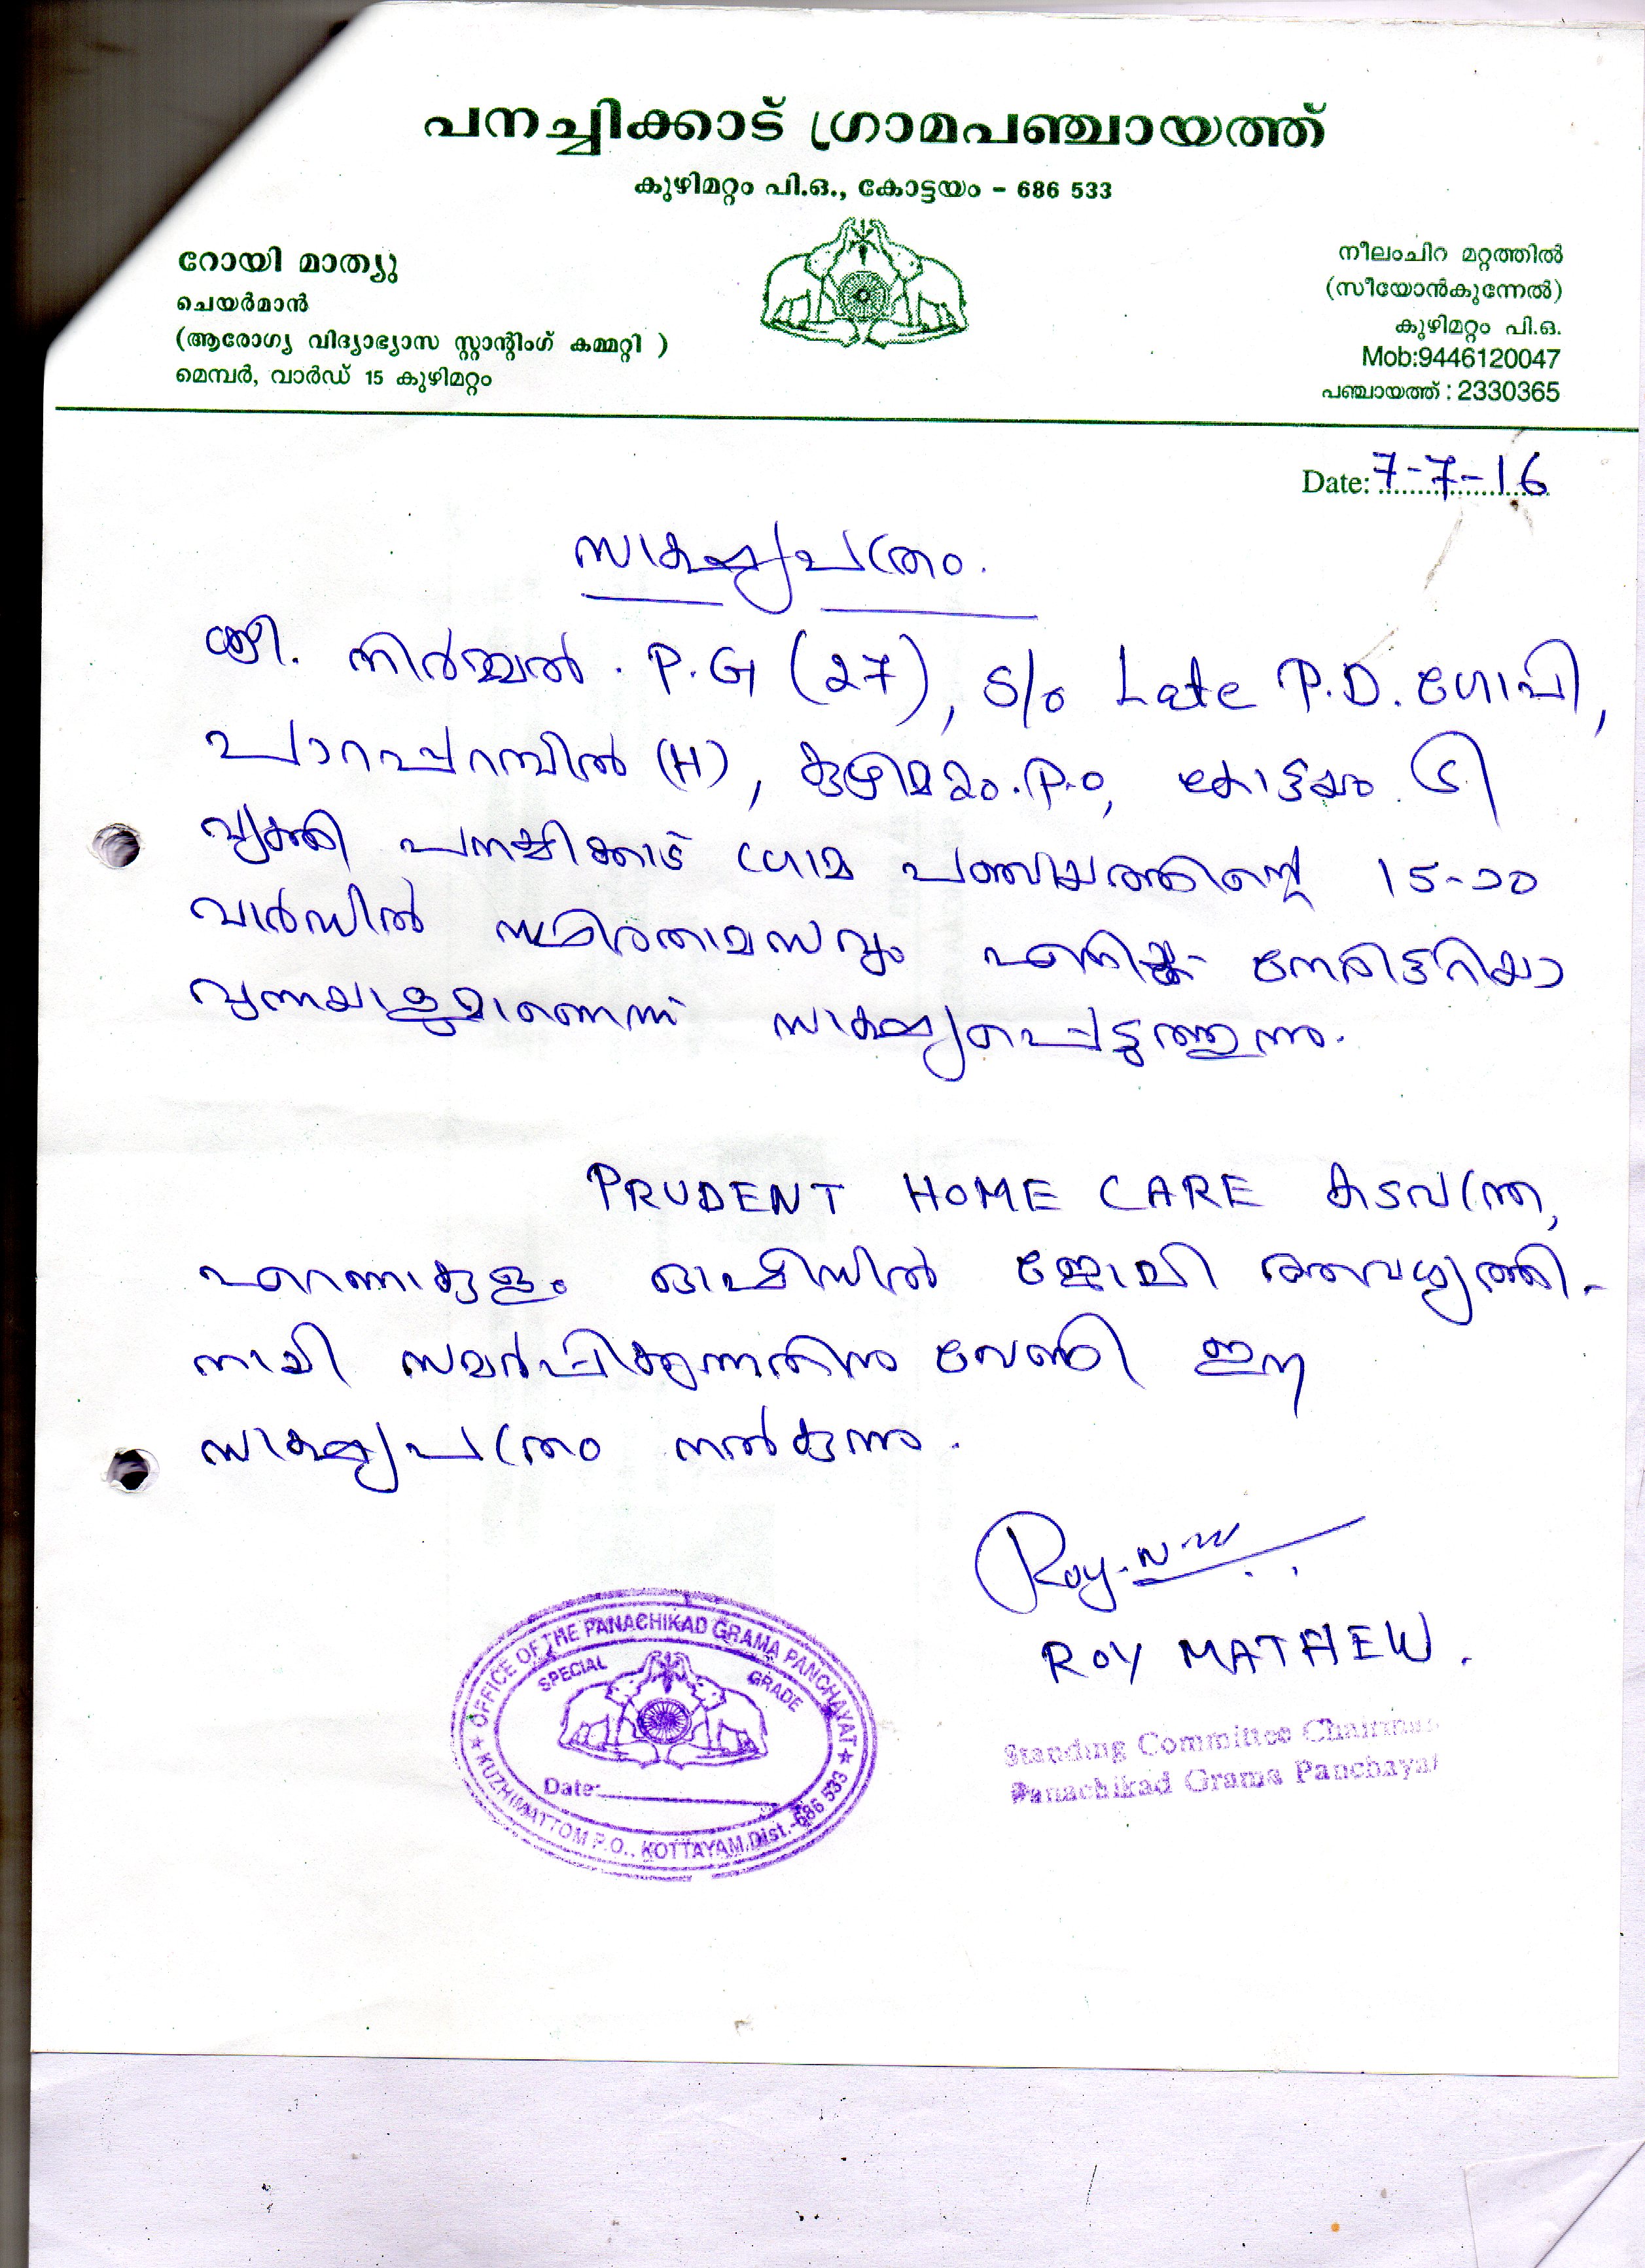 പനച്ചിക്കാട് ഗ്രാമപഞ്ചായത്ത്
കുഴിമറ്റം പി.ഒ., കോട്ടയം - 686 533
റോയി മാത്യു
ചെയർമാൻ
(ആരോഗ്യ വിദ്യാഭ്യാസ സ്റ്റാന്റിംഗ് കമ്മറ്റി )
മെമ്പർ, വാർഡ് 15 കുഴിമറ്റം
നീലംചിറ മറ്റത്തിൽ
(സീയോൻകുന്നേൽ)
കുഴിമറ്റം പി.ഒ.
Mob:9446120047
പഞ്ചായത്ത് : 2330365
Date: 7-7-16
സാക്ഷ്യപത്രം.
ശ്രീ. നിർമ്മൽ. P.G (27), S/o Late P.D. ഗോപി,
പാറപ്പറമ്പിൽ (H), കുഴിമറ്റം.P.O, കോട്ടയം. ടി
വ്യക്തി പനച്ചിക്കാട് ഗ്രാമ പഞ്ചായത്തിന്റെ 15-ാം
വാർഡിൽ സ്ഥിരതാമസവും എനിക്ക് നേരിട്ടറിയാ
വുന്നയാളുമാണെന്ന് സാക്ഷ്യപ്പെടുത്തുന്നു.
PRUDENT HOME CARE കടവന്ത്ര,
എറണാകുളം ഓഫീസിൽ ജോലി ആവശ്യത്തി-
നായി സമർപ്പിക്കുന്നതിനു വേണ്ടി ഈ
സാക്ഷ്യപത്രം നൽകുന്നു.
ROY MATHEW.
Standing Committee Chairman
Panachikad Grama Panchayat
OFFICE OF THE PANACHIKAD GRAMA PANCHAYAT
SPECIAL GRADE
Date:
KUZHIMATTOM P.O., KOTTAYAM.Dist.-686 533